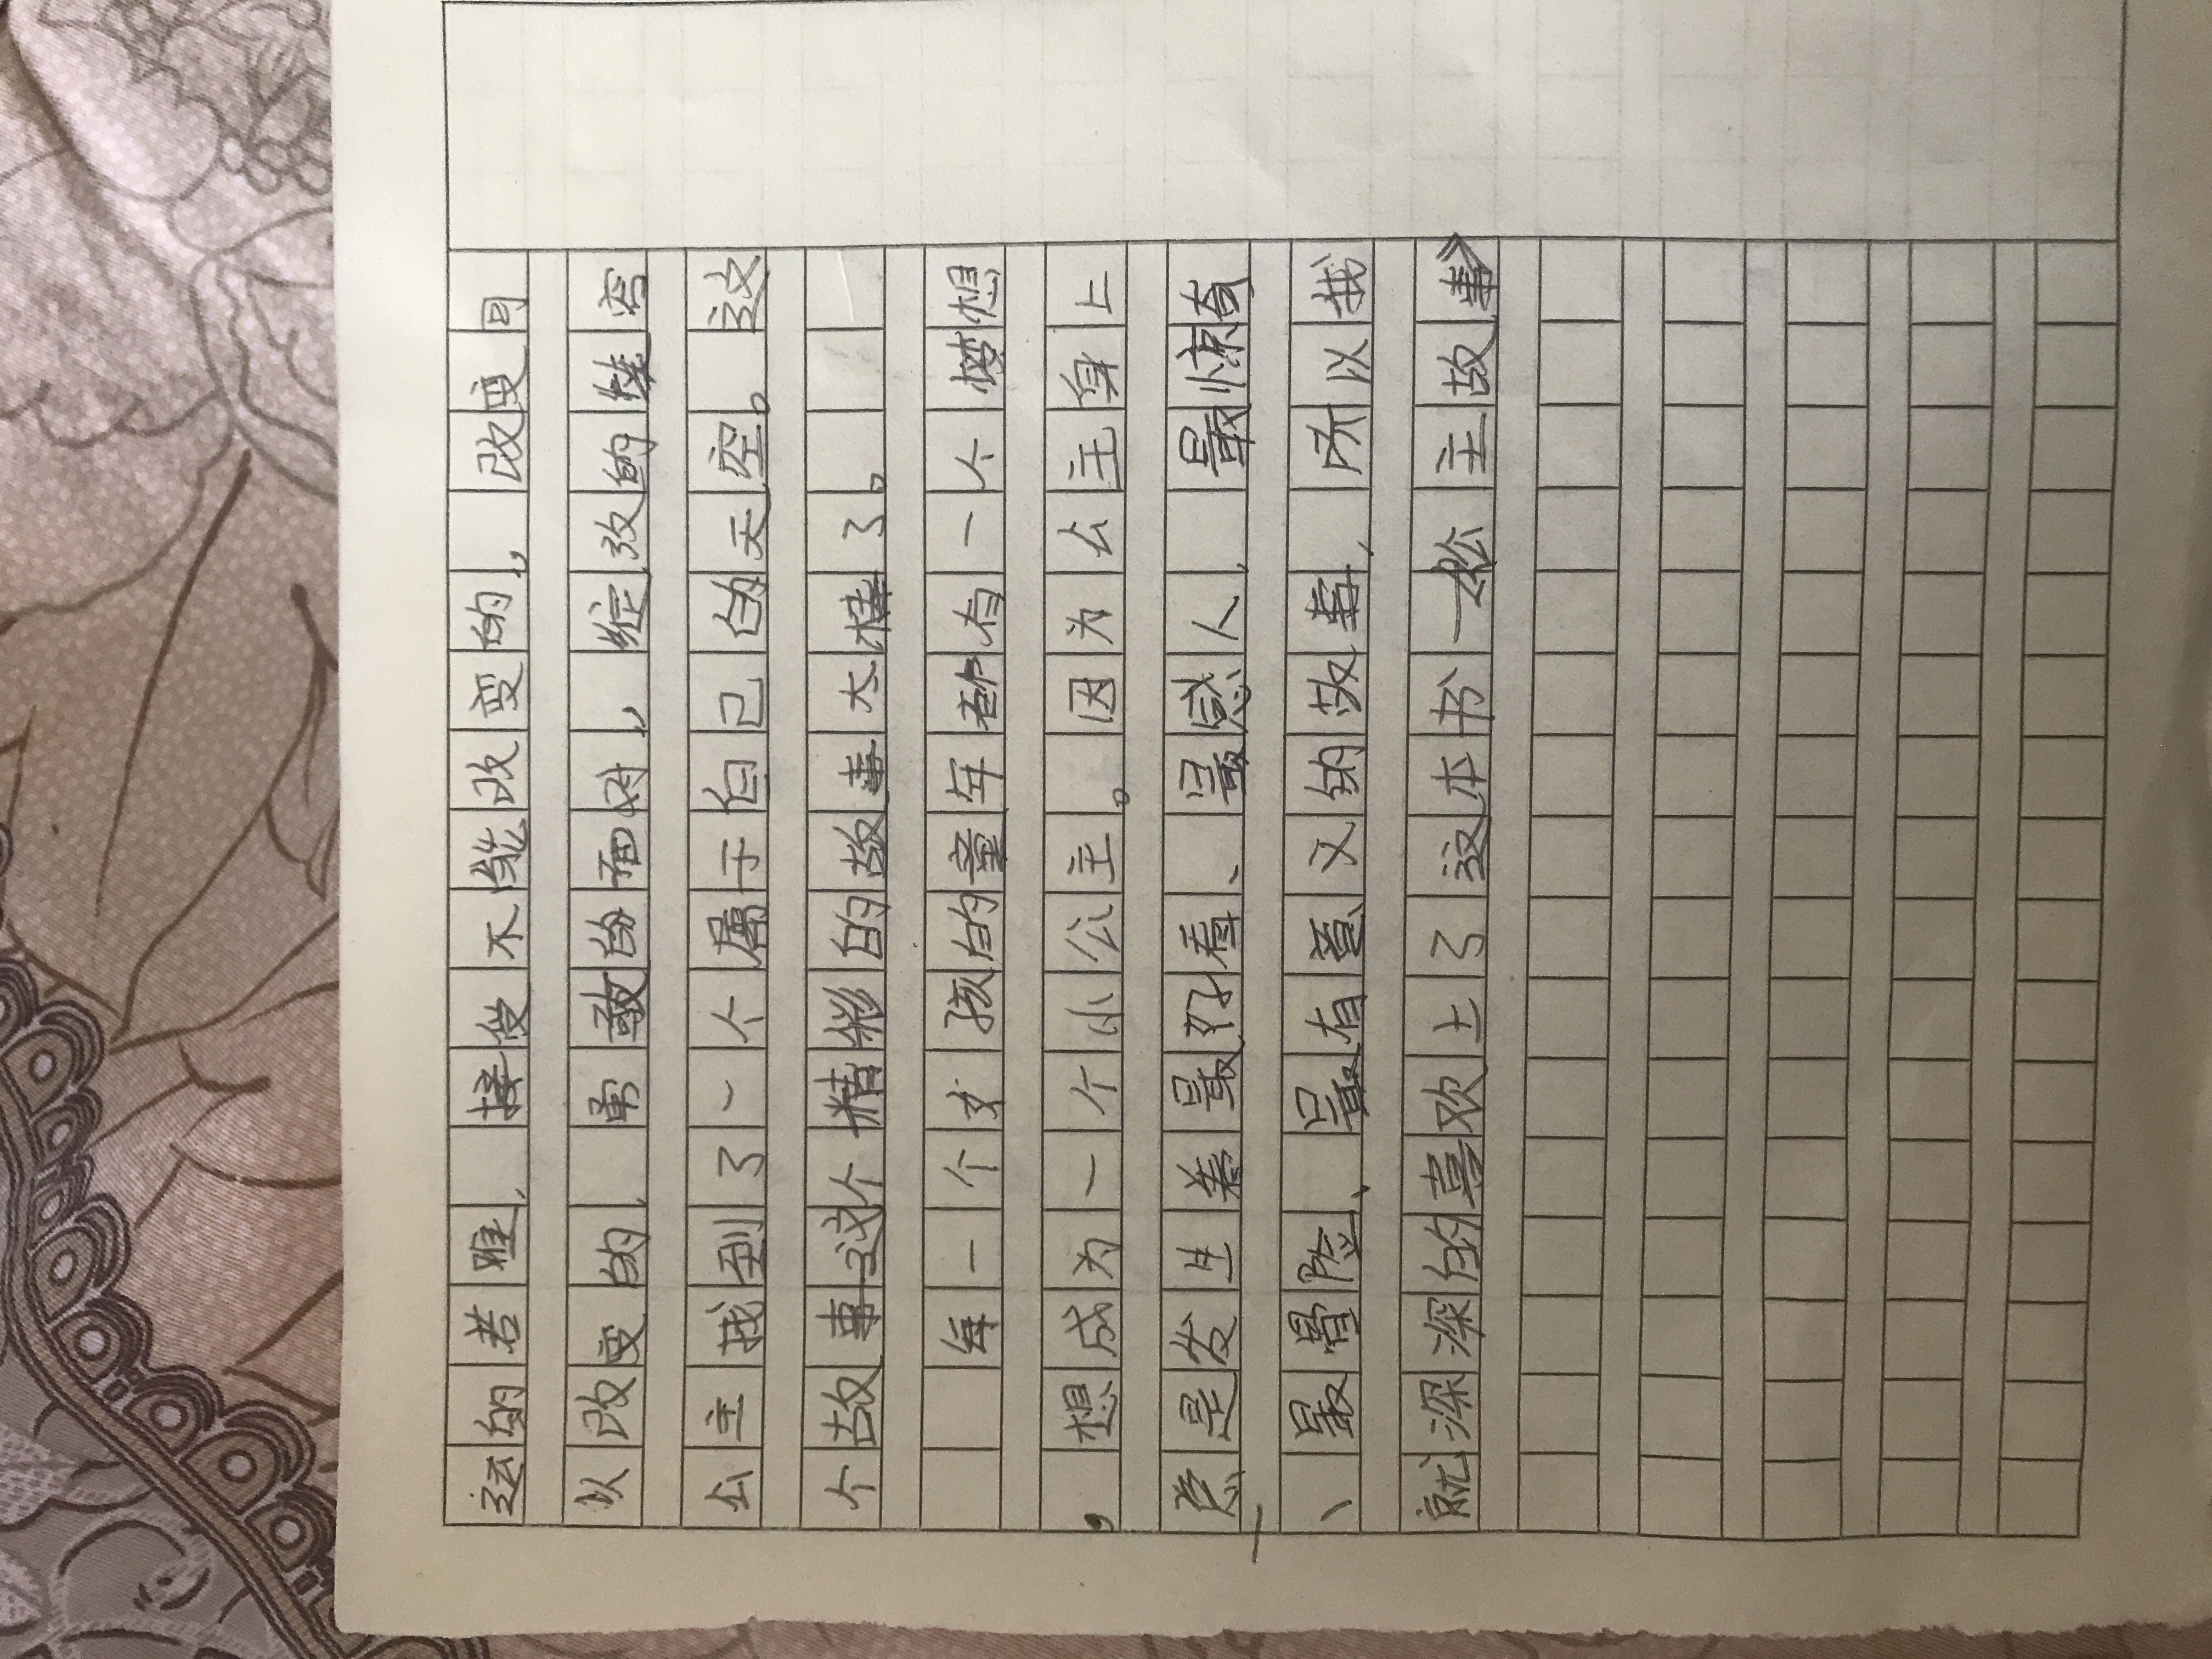 运的若，接受不能改变的，改变可
以改变的，勇敢的面对，绽放的
公主找到了一个属于自己的天空。这
个故事这个精彩的故事太棒了。
每一个女孩的童年都有一个梦想
，想成为一个小公主。因为公主身上
总是发生着最好看、最感人、最惊奇
、最冒险、最有意义的故事，所以我
就深深的喜欢上了这本书—《公主故事》